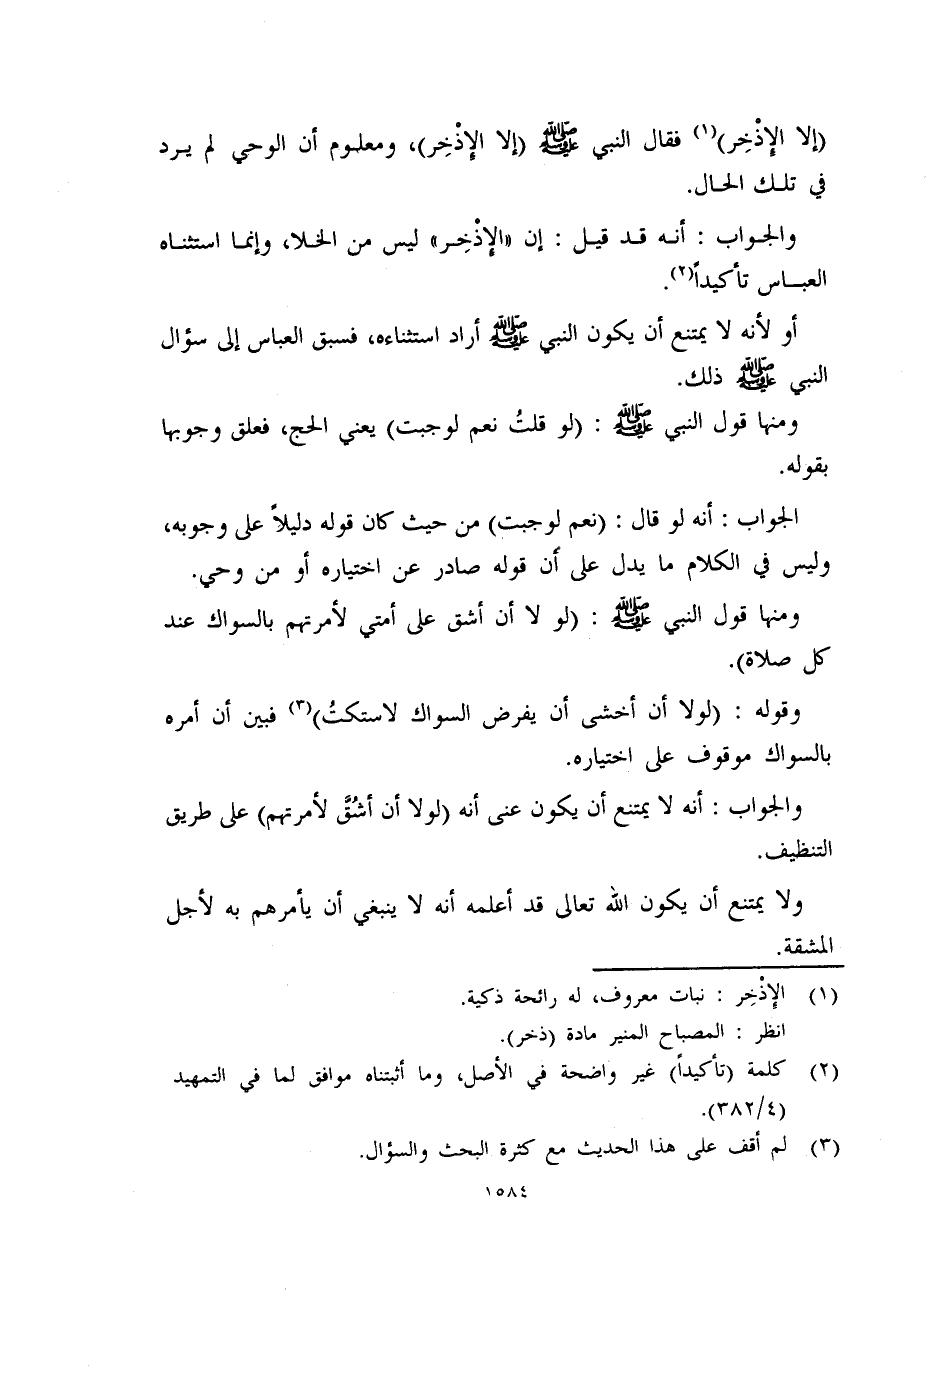 (إلا الإِذْخِر)(١) فقال النبي ﷺ (إلا الإِذْخِر)، ومعلوم أن الوحي لم يرد
في تلك الحال.
والجواب : أنه قد قيل : إن «الإِذْخِر» ليس من الخلا، وإنما استثناه
العباس تأكيداً(٢).
أو لأنه لا يمتنع أن يكون النبي ﷺ أراد استثناءه، فسبق العباس إلى سؤال
النبي ﷺ ذلك.
ومنها قول النبي ﷺ : (لو قلتُ نعم لوجبت) يعني الحج، فعلق وجوبها
بقوله.
الجواب : أنه لو قال : (نعم لوجبت) من حيث كان قوله دليلاً على وجوبه،
وليس في الكلام ما يدل على أن قوله صادر عن اختياره أو من وحي.
ومنها قول النبي ﷺ : (لو لا أن أشق على أمتي لأمرتهم بالسواك عند
كل صلاة).
وقوله : (لولا أن أخشى أن يفرض السواك لاستكتُ)(٣) فبين أن أمره
بالسواك موقوف على اختياره.
والجواب : أنه لا يمتنع أن يكون عنى أنه (لولا أن أشُقَّ لأمرتهم) على طريق
التنظيف.
ولا يمتنع أن يكون الله تعالى قد أعلمه أنه لا ينبغي أن يأمرهم به لأجل
المشقة.
(١) الإِذْخِر : نبات معروف، له رائحة ذكية.
انظر : المصباح المنير مادة (ذخر).
(٢) كلمة (تأكيداً) غير واضحة في الأصل، وما أثبتناه موافق لما في التمهيد
(٣٨٢/٤).
(٣) لم أقف على هذا الحديث مع كثرة البحث والسؤال.
١٥٨٤